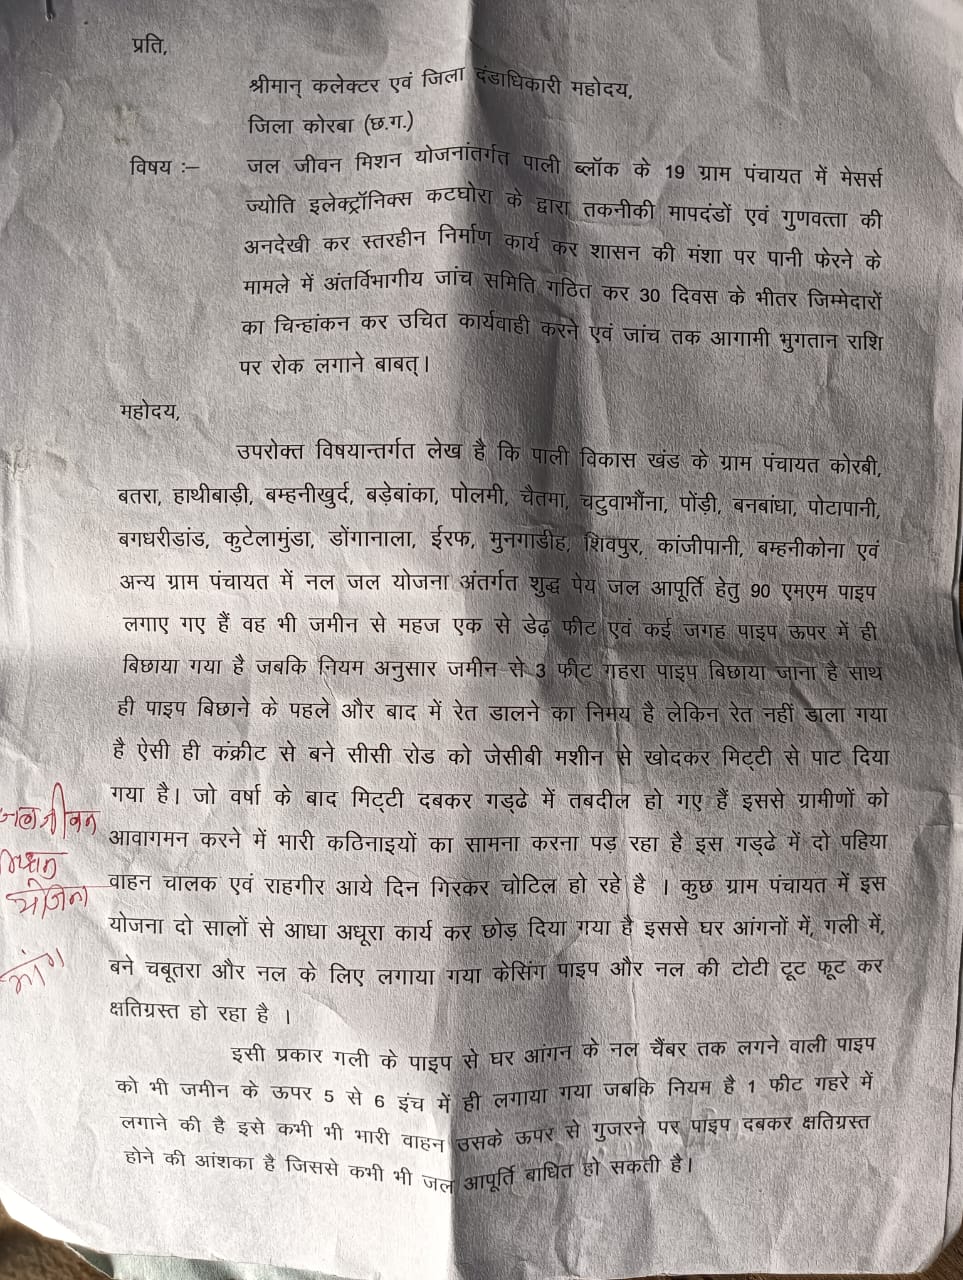 प्रति,
श्रीमान् कलेक्टर एवं जिला दंडाधिकारी महोदय,
जिला कोरबा (छ.ग.)
विषय :– जल जीवन मिशन योजनांतर्गत पाली ब्लॉक के 19 ग्राम पंचायत में मेसर्स
ज्योति इलेक्ट्रॉनिक्स कटघोरा के द्वारा तकनीकी मापदंडों एवं गुणवत्ता की
अनदेखी कर स्तरहीन निर्माण कार्य कर शासन की मंशा पर पानी फेरने के
मामले में अंतर्विभागीय जांच समिति गठित कर 30 दिवस के भीतर जिम्मेदारों
का चिन्हांकन कर उचित कार्यवाही करने एवं जांच तक आगामी भुगतान राशि
पर रोक लगाने बाबत्।
महोदय,
उपरोक्त विषयान्तर्गत लेख है कि पाली विकास खंड के ग्राम पंचायत कोरबी,
बतरा, हाथीबाड़ी, बम्हनीखुर्द, बड़ेबांका, पोलमी, चैतमा, चटुवाभौंना, पोंड़ी, बनबांधा, पोटापानी,
बगधरीडांड, कुटेलामुंडा, डोंगानाला, ईरफ, मुनगाडीह, शिवपुर, कांजीपानी, बम्हनीकोना एवं
अन्य ग्राम पंचायत में नल जल योजना अंतर्गत शुद्ध पेय जल आपूर्ति हेतु 90 एमएम पाइप
लगाए गए हैं वह भी जमीन से महज एक से डेढ़ फीट एवं कई जगह पाइप ऊपर में ही
बिछाया गया है जबकि नियम अनुसार जमीन से 3 फीट गहरा पाइप बिछाया जाना है साथ
ही पाइप बिछाने के पहले और बाद में रेत डालने का निमय है लेकिन रेत नहीं डाला गया
है ऐसी ही कंक्रीट से बने सीसी रोड को जेसीबी मशीन से खोदकर मिट्टी से पाट दिया
गया है। जो वर्षा के बाद मिट्टी दबकर गड्ढे में तबदील हो गए हैं इससे ग्रामीणों को
आवागमन करने में भारी कठिनाइयों का सामना करना पड़ रहा है इस गड्ढे में दो पहिया
वाहन चालक एवं राहगीर आये दिन गिरकर चोटिल हो रहे है । कुछ ग्राम पंचायत में इस
योजना दो सालों से आधा अधूरा कार्य कर छोड़ दिया गया है इससे घर आंगनों में, गली में,
बने चबूतरा और नल के लिए लगाया गया केसिंग पाइप और नल की टोटी टूट फूट कर
क्षतिग्रस्त हो रहा है ।
इसी प्रकार गली के पाइप से घर आंगन के नल चैंबर तक लगने वाली पाइप
को भी जमीन के ऊपर 5 से 6 इंच में ही लगाया गया जबकि नियम है 1 फीट गहरे में
लगाने की है इसे कभी भी भारी वाहन उसके ऊपर से गुजरने पर पाइप दबकर क्षतिग्रस्त
होने की आंशका है जिससे कभी भी जल आपूर्ति बाधित हो सकती है।
जल जीवन